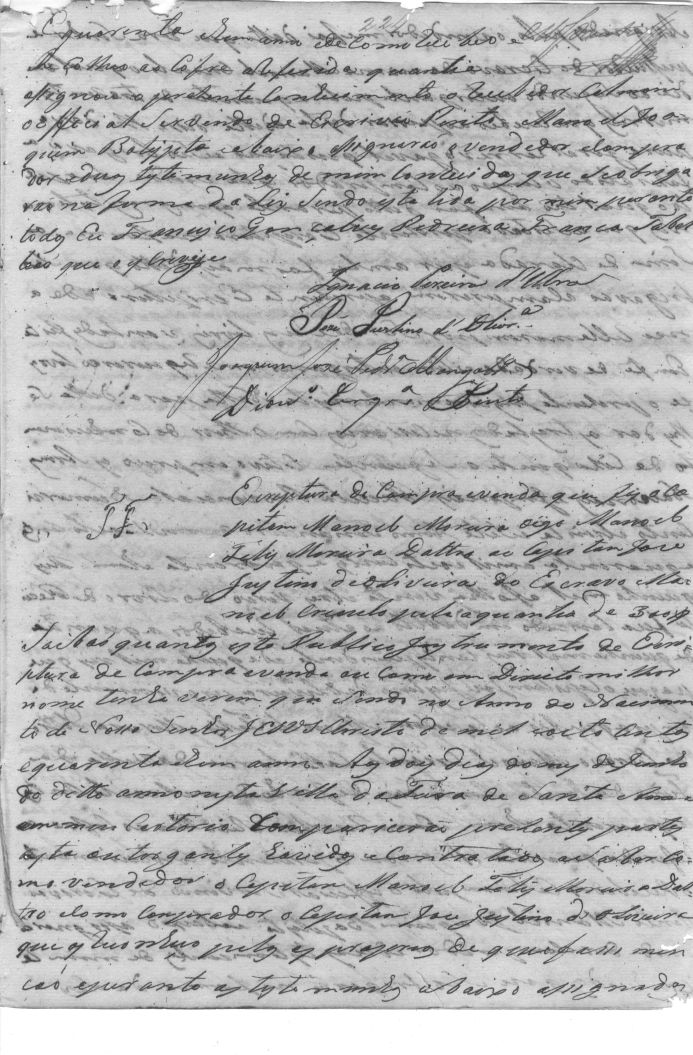 224
E quarenta e hum anno e de como recebeo e
Recolheo ao Cofre a referida quantia
assignou o prezente Conhecimento o Recebedor
o official Servindo de Escrivão Pinto Manoel Joa
quim Baptista e abaixo assignarão o vendedor e compra
dor e duas testemunhas de mim conhecidas que se obriga
rão na forma da Ley sendo esta lida por mim perante
todos Eu Francisco Gonçalves Pedreira França Tabel
lião que o escrevy
Ignacio Pereira d'Utra
Joze Justino d'Olivr.ª
Joaquim José Pedr.ª Mangabr.ª
Pinto
Escriptura de Compra e venda que faz o Ca
pitam Manoel Moreira digo Manoel
Felis Moreira Daltro ao Capitam Joze
Justino de Oliveira do Escravo Ma
noel Crioulo pela quantia de 300$
Saibão quantos este Publico Instrumento de Escri
ptura de Compra e venda ou como em Direito milhor
nome tenha virem que sendo no Anno do Nacimen
to de Nosso Senhor JESUS Christo de mil oito centos
e quarenta e hum anno Aos dois dias do mes de Junho
do ditto anno nesta Villa da Feira de Santa Anna
em meu Cartorio comparicerão prezentes partes
esta outorgantes havidas e contratadas a saber Co
mo vendedor o Capitam Manoel Felis Moreira Dal
tro e como comprador o Capitam Joze Justino de Oliveira
que os reconheço pelos proprios de que faço men
ção e perante as testemunhas abaixo assignadas